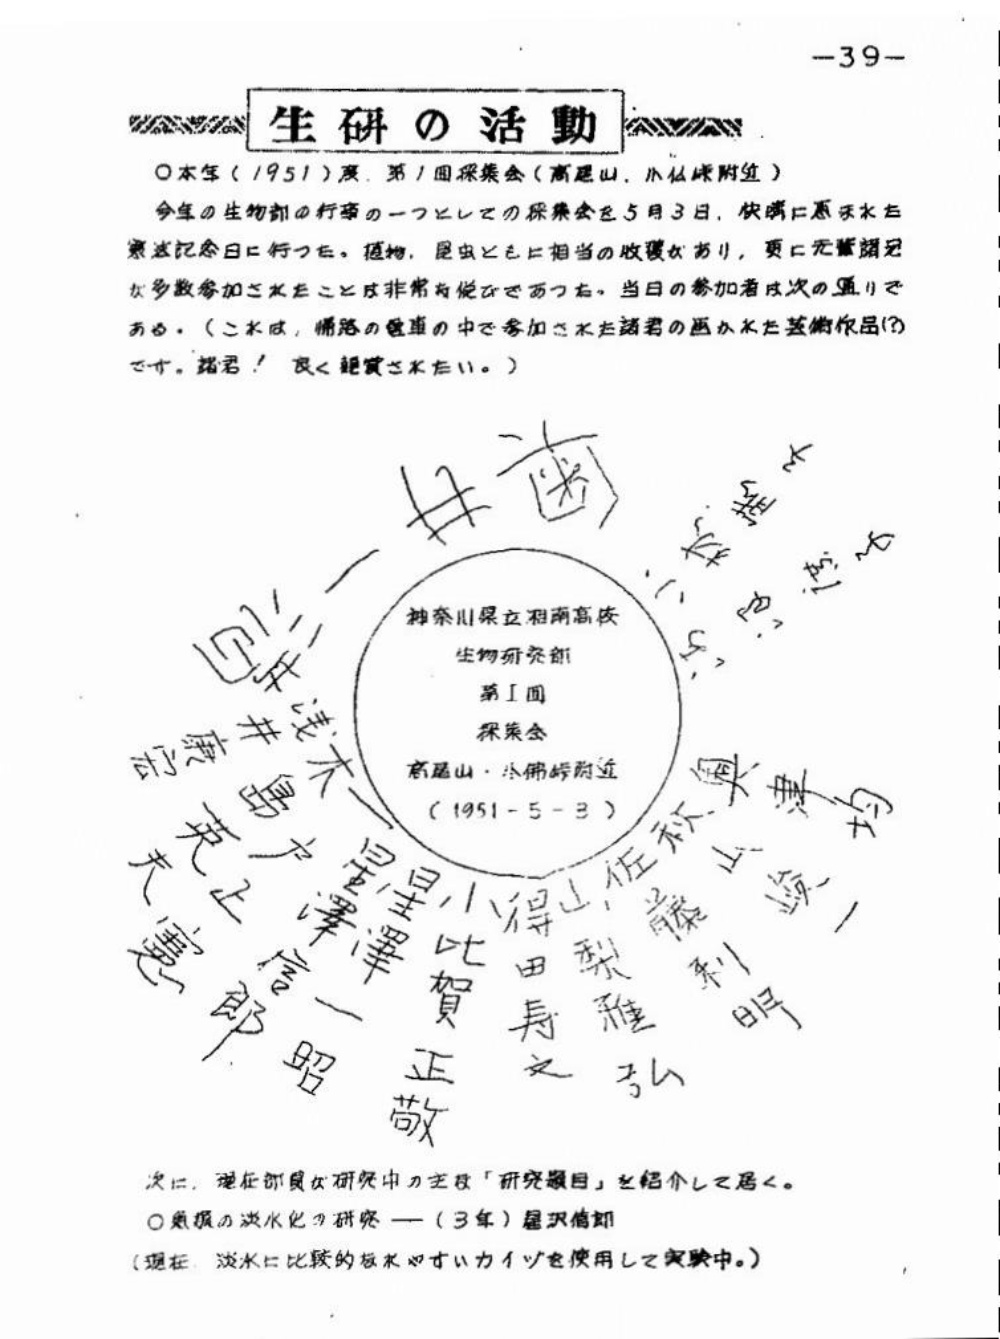 －39－
生研の活動
○本年（1951）度．第1回採集会（高尾山．小仏峠附近）
今年の生物部の行事の一つとしての採集会を5月3日．快晴に恵まれた
憲法記念日に行つた。植物．昆虫ともに相当の收獲があり，更に先輩諸兄
が多数参加されたことは非常な悦びであつた。当日の参加者は次の通りで
ある。（これは，帰路の電車の中で参加された諸君の画かれた芸術作品(?)
です。諸君！ 良く観賞されたい。）
神奈川県立相南高校
生物研究部
第I回
採集会
高尾山・小佛峠附近
（1951－5－3）
奥津均
秋山崎一
佐藤利明
山梨雅弘
得田寿文
小比賀正敬
星澤一昭
星澤信郎
浅井康宏
次に．現在部員が研究中の主な「研究題目」を紹介して居く。
○魚類の淡水化の研究 ──（3年）星沢信郎
（現在 淡水に比較的なれやすいカイヅを使用して実験中。）